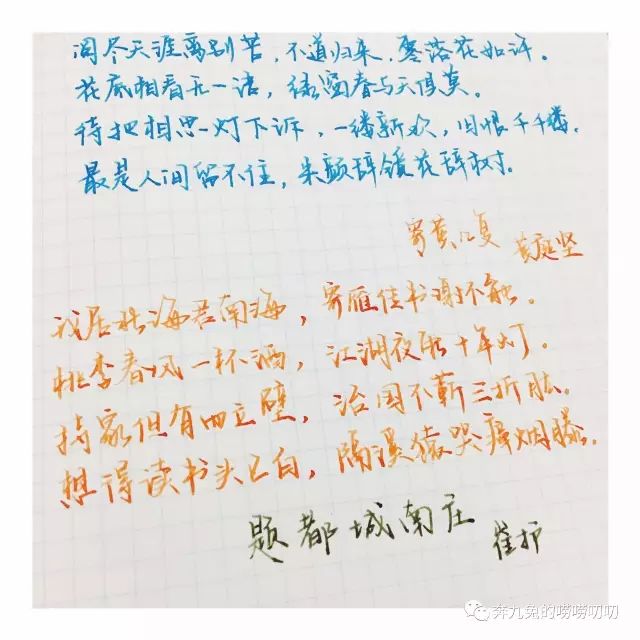 阅尽天涯离别苦，不道归来，零落花如许。
花底相看无一语，绿窗春与天俱莫。
待把相思灯下诉，一缕新欢，旧恨千千缕。
最是人间留不住，朱颜辞镜花辞树。
寄黄几复 黄庭坚
我居北海君南海，寄雁传书谢不能。
桃李春风一杯酒，江湖夜雨十年灯。
持家但有四立壁，治国不蕲三折肱。
想得读书头已白，隔溪猿哭瘴烟藤。
题都城南庄 崔护
奔九兔的唠唠叨叨